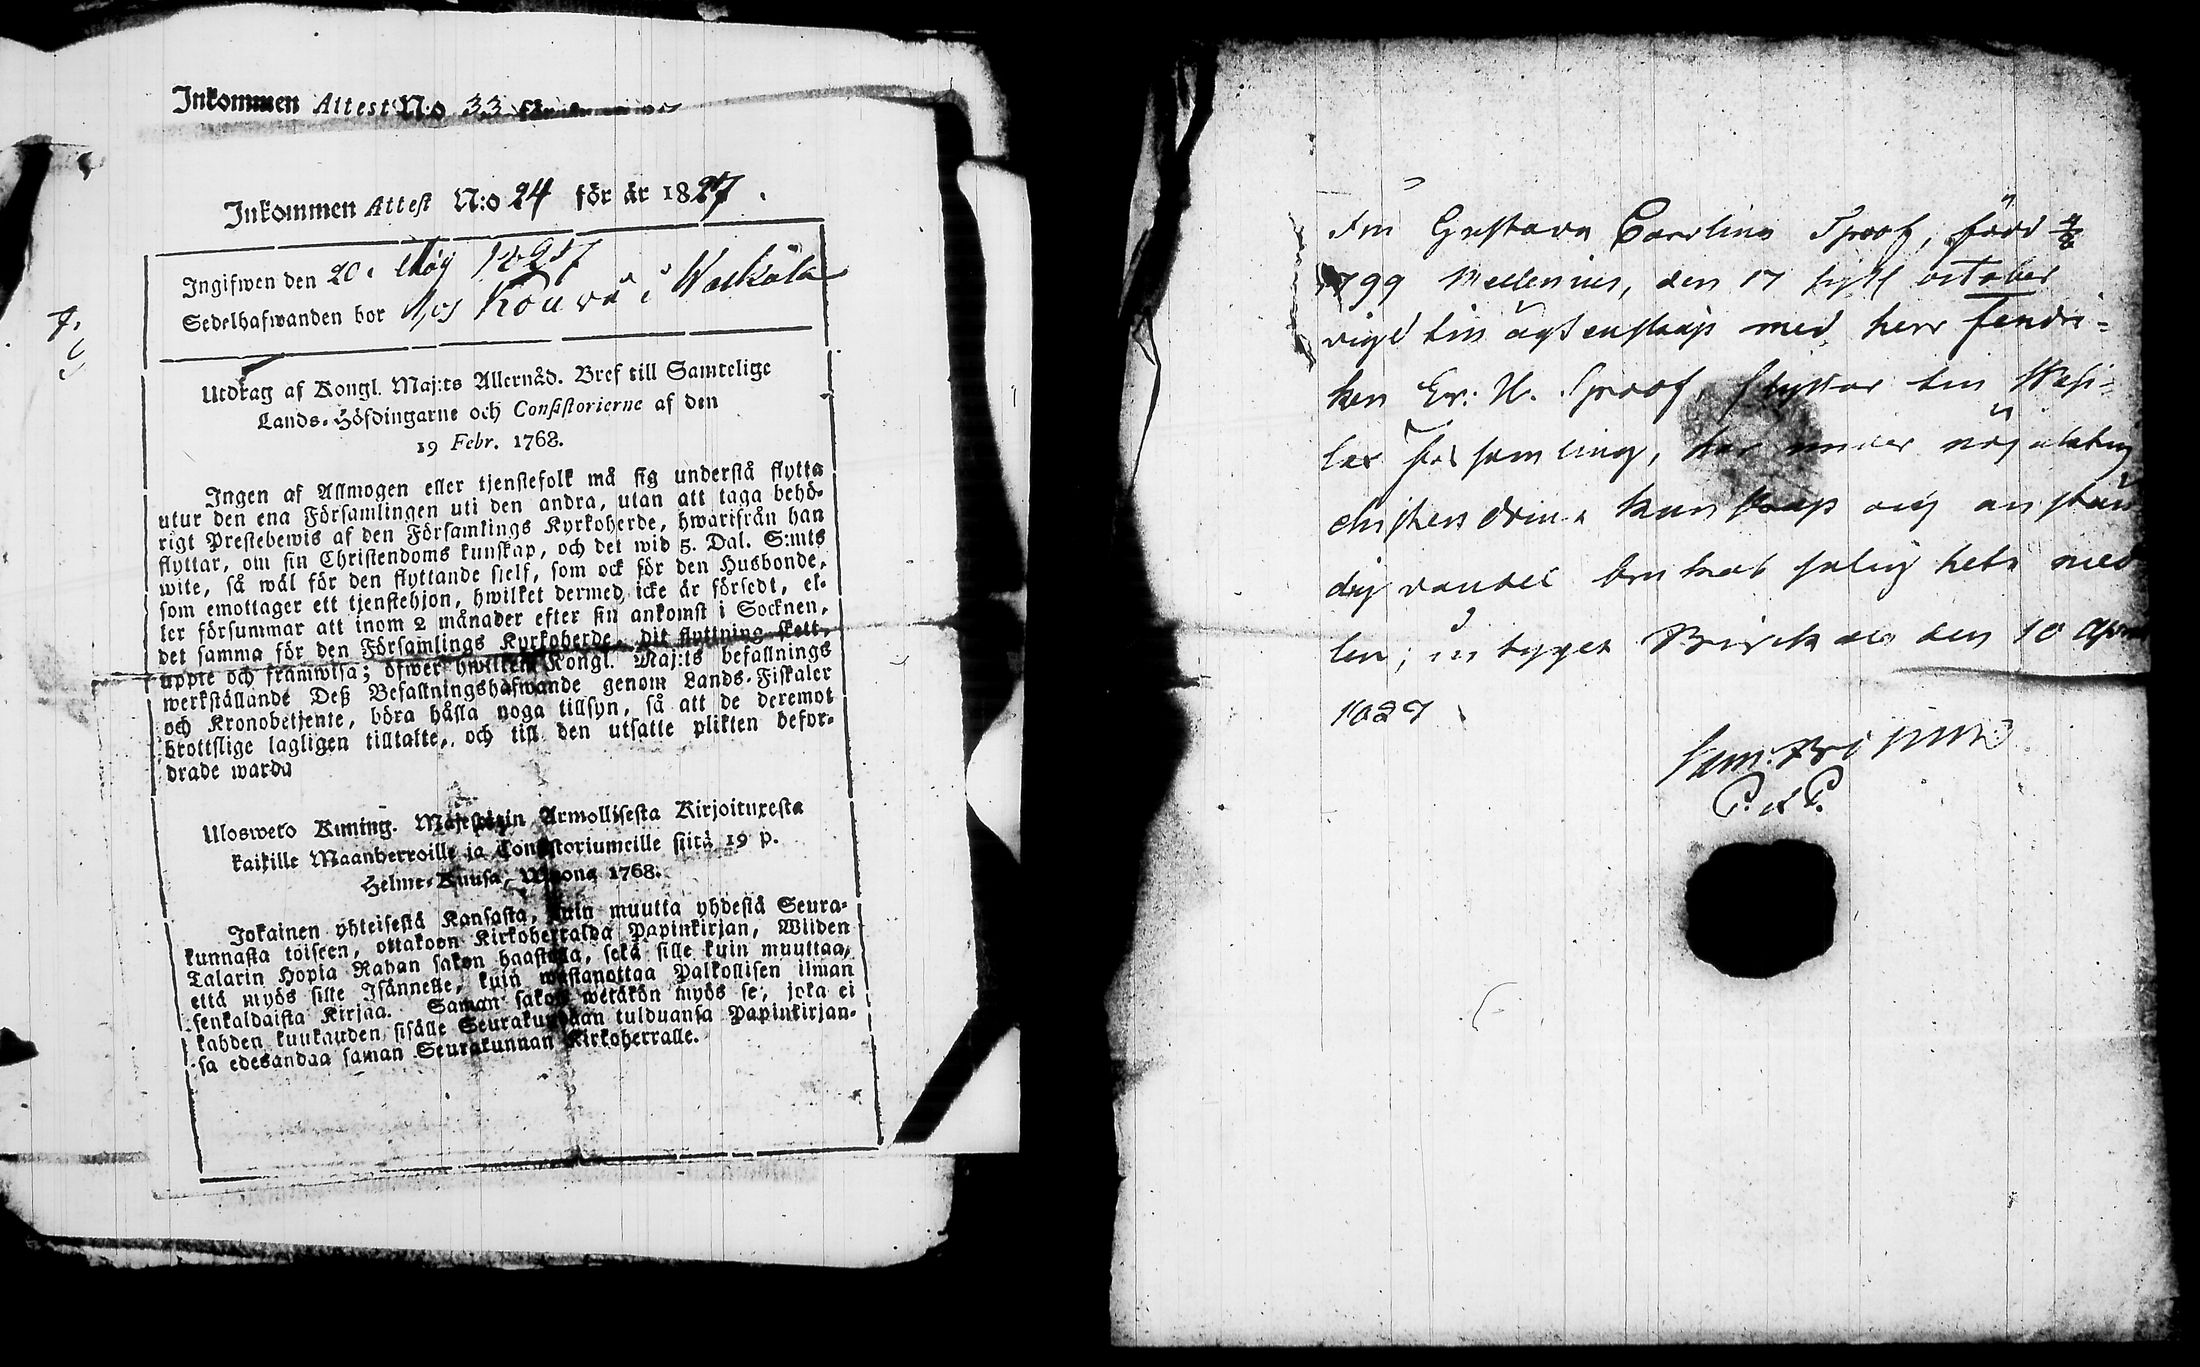 Inkommen Attest N:o 33 för
Inkommen Attest N:o 24 för år 1827.
Ingifwen den 20 Maj 1827
Sedelhafwanden bor hos Kouva i Waskala
Utdrag af Kongl. Maj:ts Allernåd. Bref till Samtelige
Lands-Höfdingarne och Consistorierne af den
19 Febr. 1768.
Ingen af Allmogen eller tjenstefolk må sig understå flytta
utur den ena Församlingen uti den andra, utan att taga behö-
rigt Prestebewis af den Församlings Kyrkoherde, hwarifrån han
flyttar, om sin Christendoms kunskap, och det wid 5. Dal. S:mts
wite, så wäl för den flyttande sielf, som ock för den Husbonde,
som emottager ett tjenstehjon, hwilket dermed icke är försedt, el-
ler försummar att inom 2 månader efter sin ankomst i Socknen,
det samma för den Församlings Kyrkoherde, dit flyttning skett,
uppte och framwisa; öfwer hwilket Kongl. Maj:ts befallnings
werkställande Deß Befallningshafwande genom Lands-Fiskaler
och Kronobetjente, böra hålla noga tillsyn, så att de deremot
brottslige lagligen tilltalte, och till den utsatte plikten befor-
drade warda
Ulosweto Kuning. Majestetin Armollisesta Kirjoituxesta
kaikille Maanherroille ja Consistoriumeille siitä 19 p.
Helme-Kuusa, Wuona 1768.
Jokainen yhteisestä Kansasta, kuin muutta yhdestä Seura-
kunnasta toiseen, ottakoon Kirkoherralda Papinkirjan, Wiiden
Talarin Hopia Rahan sakon haastolla, sekä sille kuin muuttaa,
että myös sille Isännelle, kuin wastanottaa Palkollisen ilman
senkaldaista Kirjaa. Saman sakon wetäkön myös se, joka ei
kahden kuukauden sisälle Seurakundaan tulduansa Papinkirjan-
sa edesandaa saman Seurakunnan Kirkoherralle.
Fru Gustava Carolina Sproof, född 4/8
1799 Mellenius, den 17 sistl october
vigd till ägtenskap med herr fendri-
ken Er. H. Sproof, flyttar till Wesi-
lax församling, har under nöjaktig
christendoms kunskap och anstän
dig vandel brukat salighets med
len; intyget Birckala den 10 April
1827
Sam:
P. & P.